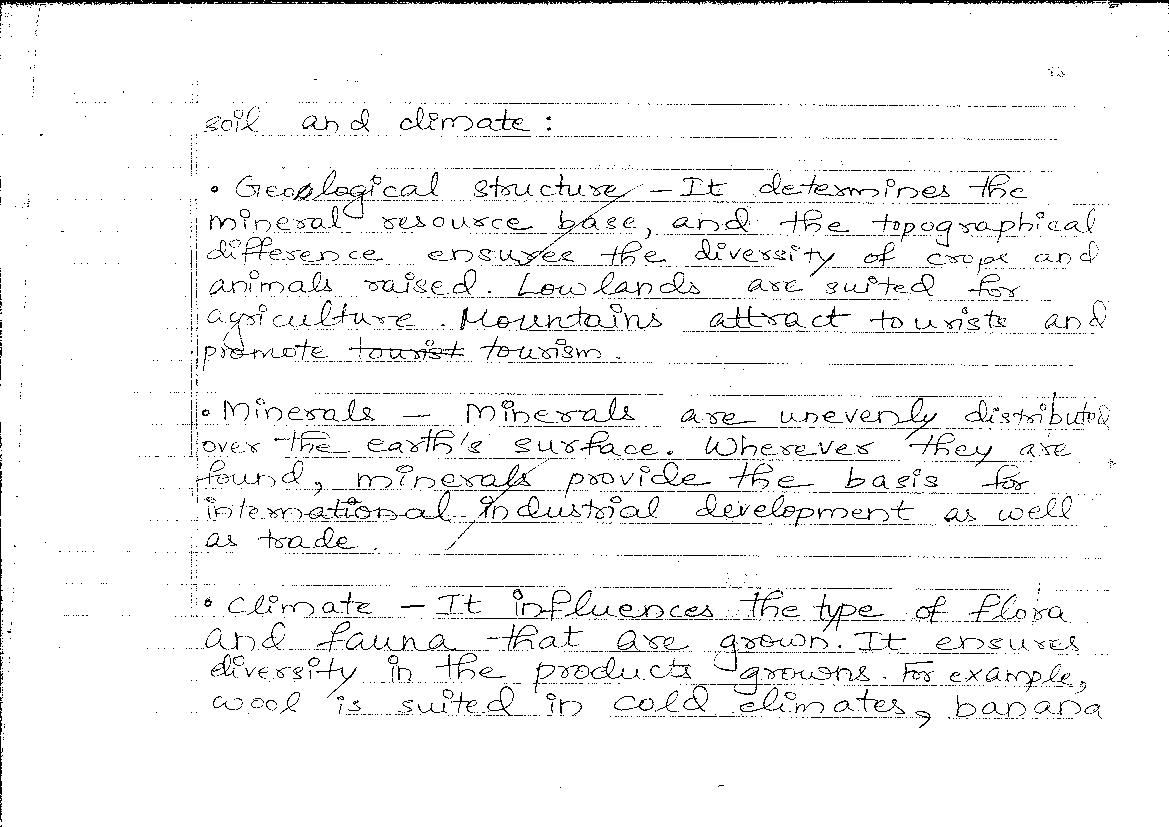 soil and climate :
• Geological structure – It determines the
mineral resource base, and the topographical
difference ensures the diversity of crops and
animals raised. Lowlands are suited for
agriculture. Mountains attract tourists and
promote tourist tourism.
• Minerals – Minerals are unevenly distributed
over the earth's surface. Wherever they are
found, minerals provide the basis for
international industrial development as well
as trade.
• Climate – It influences the type of flora
and fauna that are grown. It ensures
diversity in the products growns. For example,
wool is suited in cold climates, banana